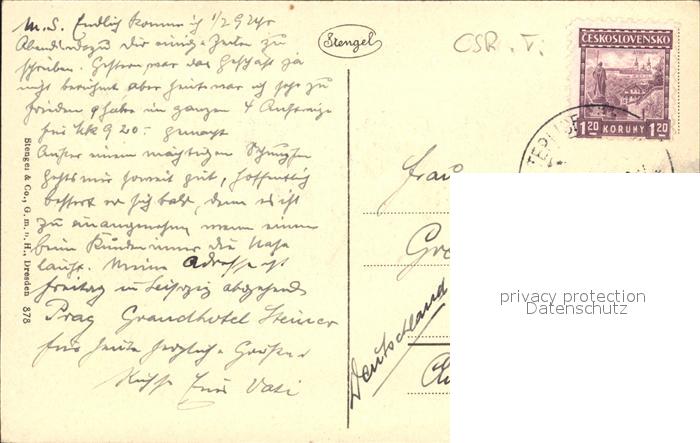 M. S. Endlich komme ich 1/2 9 Uhr
Abends dazu Dir einige Zeilen zu
schreiben. Gestern war das Geschäft ja
nicht berühmt aber heute war ich sehr zu
frieden & habe im ganzen 4 Aufträge
für Kk 920.- gemacht
Außer einem mächtigen Schnupfen
gehts mir soweit gut, hoffentlich
bessert er sich bald, denn es ist
zu unangenehm wenn einem
beim Kunden immer die Nase
läuft. Meine Adresse ist
Freitag in Leipzig abgehend
Prag Grandhotel Steiner
für heute herzliche Grüße &
Küsse Euer Vati
Stengel & Co., G. m. b. H., Dresden 878
Stengel
CSR. T.
ČESKOSLOVENSKO
1.20 KORUNY 1.20
TEPLICE
Frau
Deutschland
privacy protection
Datenschutz